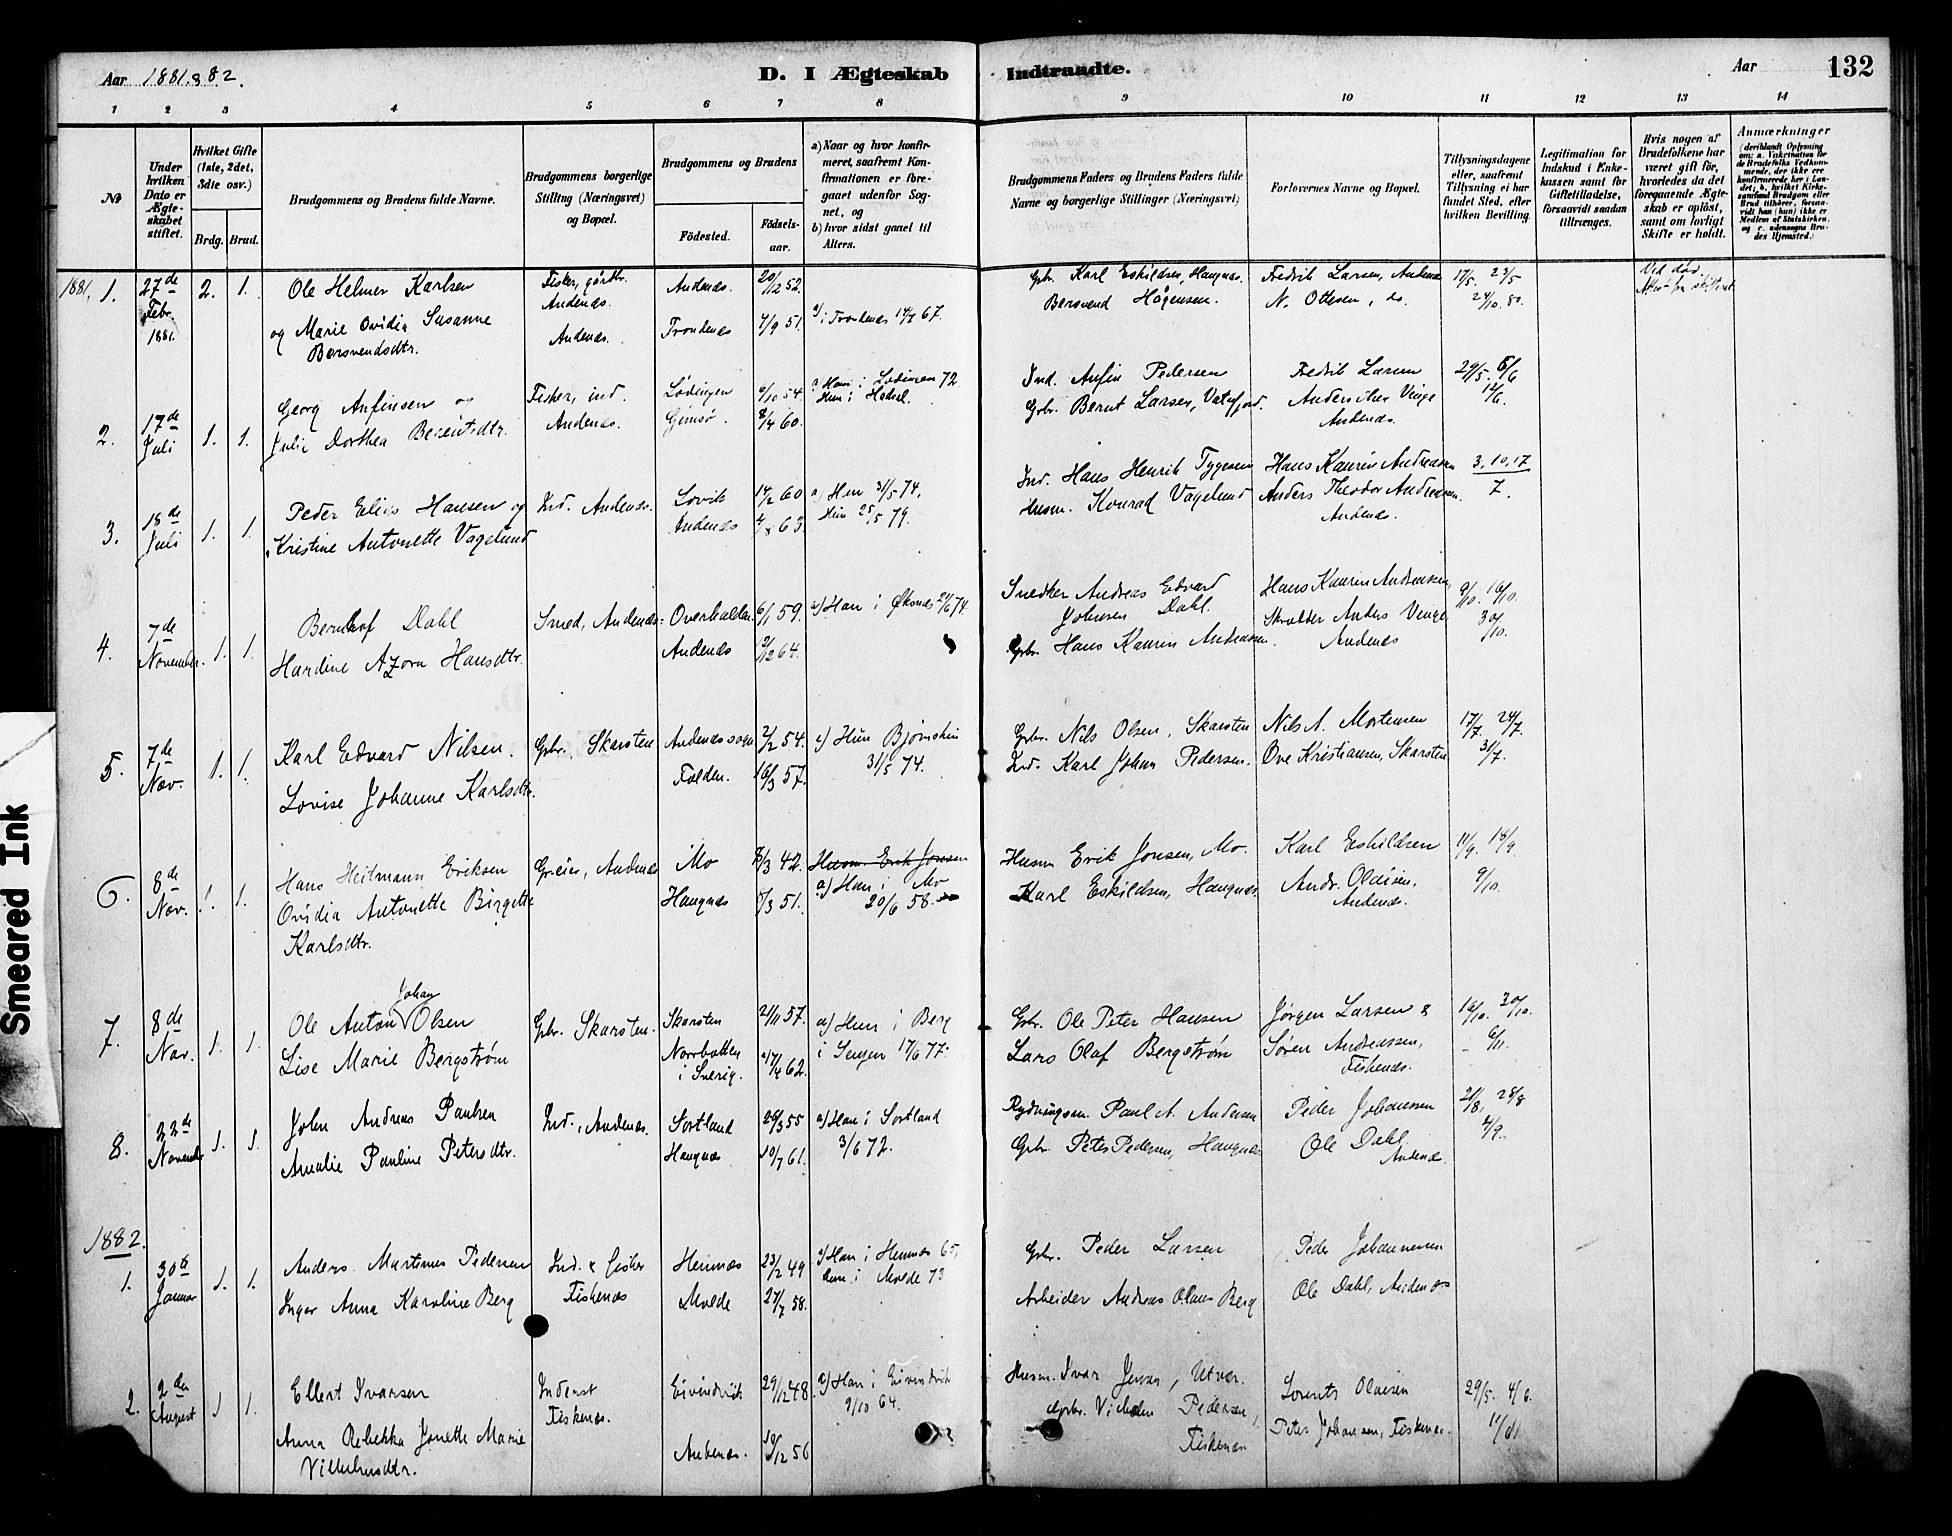 Aar 1881 & 82.
D. I Ægteskab Indtraadte.
Aar
132
1 2 3 4 5 6 7 8 9 10 11 12 13 14
№
Under hvilken Dato er Ægteskabet stiftet.
Hvilket Gifte (1ste, 2det, 3die osv.)
Brdg. Brud.
Brudgommens og Brudens fulde Navne.
Brudgommens borgerlige Stilling (Næringsvei) og Bopæl.
Brudgommens og Brudens
Fødested.
Fødselsaar.
a) Naar og hvor konfirmeret, saafremt Konfirmationen er foregaaet udenfor Sognet, og
b) hvor sidst gaaet til Alters.
Brudgommens Faders og Brudens Faders fulde Navne og borgerlige Stillinger (Næringsvei)
Forlovernes Navne og Bopæl.
Tillysningsdagene eller, saafremt Tillysning ei har fundet Sted, efter hvilken Bevilling.
Legitimation for Indskud i Enkekassen samt for Giftetilladelse, forsaavidt saadan tiltrænges.
Hvis nogen af Brudefolkene har været gift før, hvorledes da det foregaaende Ægteskab er opløst, samt om lovligt Skifte er holdt.
Anmærkninger (deriblandt Oplysning om: a. Vakcination for de Brudefolks Vedkommende, der ikke ere konfirmerede her i Landet; b. hvilket Kirkesamfund Brudgom eller Brud tilhører, forsaavidt han (hun) ikke er Medlem af Statskirken, og c. udensogns Brudes Hjemsted.)
1881. 1. 27de Febr. 1881. 2. 1.
Ole Helmer Karlsen
og Marie Ovidia Susanne
Bersvendsdtr.
Fisker, gårdbr.
Andenæs.
Andenæs.
Andenæs. 20/12 52.
Trondenæs 7/9 51.
i Trondenæs 67.
Gbr. Karl Eskildsen, Haugnæs.
Bersvend Hågensen.
Fredrik Larsen, Andenæs
N. Ottesen, do.
17/5. 23/5
24/10. 80.
Ved død.
2. 17de Juli 1. 1.
Georg Anfinsen og
Julie Dorthea Berentsdtr.
Fisker, ind.
Andenæs.
Lødingen 6/10 54.
Gimsø. 8/4 60.
a) Han i Lødingen 72
Hun i Hadsel.
Ind. Anfin Pedersen
Gbr. Bernt Larsen, Vaterfjord.
Fredrik Larsen
Vinge
Andenæs.
29/5. 6/6
12/6.
3. 18de Juli 1. 1.
Peder Elias Hansen og
Kristine Antonette Vagelund
Ind. Andenæs.
Lovik 14/2 60
Andenæs 4/8 63
a) Han 31/5 74.
Hun 25/5 79.
Ind. Hans Henrik Tygesen
Husm. Konrad Vagelund
Hans Kaurin Andreassen
Anders Theodor Andreassen.
Andenæs.
3. 10. 17
7.
4. 7de November. 1. 1.
Bernhof Dahl
Hardine Azora Hansdtr.
Smed, Andenæs.
Overhalden. 6/1 59.
Andenæs 2/12 64.
a) Han i Øksnæs 21/6 74.
Snedker Andreas Edvard
Johnsen Dahl.
Gbr. Hans Kaurin Andreassen.
Hans Kaurin Andreassen,
Skrædder Anders Vinge
Andenæs
9/10. 16/10.
30/10.
5. 7de Nov. 1. 1.
Karl Edvard Nilsen.
Lovise Johanne Karlsdtr.
Gbr. Skarsten
Andenæs sogn 2/2 54.
Folden. 16/3 57.
a) Hun Bjørnskin
31/5 74.
Gbr. Nils Olsen, Skarsten
Ind. Karl Johan Pedersen.
Nils A. Mortensen
Ove Kristiansen, Skarsten
17/7. 24/7.
31/7.
6. 8de Nov. 1. 1.
Hans Heitmann Eriksen
Ovidia Antonette Birgitte
Karlsdtr.
Andenæs
Mo 8/3 42.
Haugnæs 7/3 51.
Husm. Erik Jonsen
a) Han i Mo
20/6 58.
Husm Erik Jonsen, Mo.
Karl Eskildsen, Haugnæs.
Karl Eskildsen
Andr. Olaisen,
Andenæs.
11/9. 18/9.
9/10.
7. 8de Nov. 1. 1.
Johan
Ole Anton Olsen
Lise Marie Bergstrøm
Gbr. Skarsten.
Skarsten 21/11 57.
Norrbotten
i Sverig. 17/4 62.
a) Hun i Berg
i Senjen 17/6 77.
Gbr. Ole Peter Hansen
Lars Olaf Bergstrøm
Jørgen Larsen &
Søren Andreassen,
Fiskenæs.
16/10. 30/10.
6/11.
8. 22de November 1. 1.
John Andreas Paulsen
Amalie Pauline Petersdtr.
Ind., Andenæs.
Sortland 29/3 55
Haugnæs 10/7 61.
a) Han i Sortland
3/6 72.
Rydningsm. Paul A. Andersen
Gbr. Peter Pedersen, Haugnæs
Peder Johannesen
Ole Dahl.
Andenæs.
21/8. 28/8
4/9.
1882.
1. 30te Januar 1. 1.
Anders Martinus Pedersen
Inger Anna Karoline Berg
Ind. & fisker
Fiskenæs
Hemnæs 23/2 49
Molde 27/7 58.
a) Han i Hemnæs 65,
Hun i Molde 73
Gbr. Peder Larsen
Arbeider Andreas Olaus Berg
Peder Johannesen
Ole Dahl, Andenæs
2. 2den August 1 1.
Ellert Ivarsen
Anna Rebekka Jonette Marie
Villumsdtr.
Inderst
Fiskenæs.
Eivindvik 29/12 48.
Andenæs. 10/12 56
a) Han i Eivindvik
9/10 64.
Husm. Ivar Jensen, Utvær.
Pedersen,
Fiskenæs
Lorents Olaisen
Peter Johansen, Fiskenæs.
29/5. 4/6.
11/6
Smeared Ink